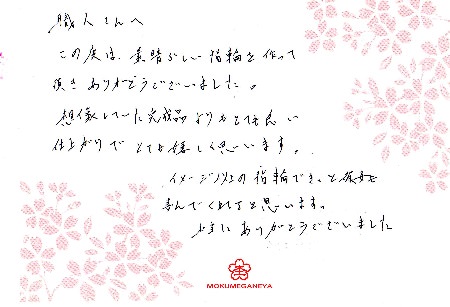 職人さんへ
この度は、素晴らしい指輪を作って
頂きありがとうございました。
想像していた完成品よりもとても良い
仕上がりでとても嬉しく思います。
イメージ以上の指輪できっと彼女も
喜んでくれると思います。
本当にありがとうございました
MOKUMEGANEYA